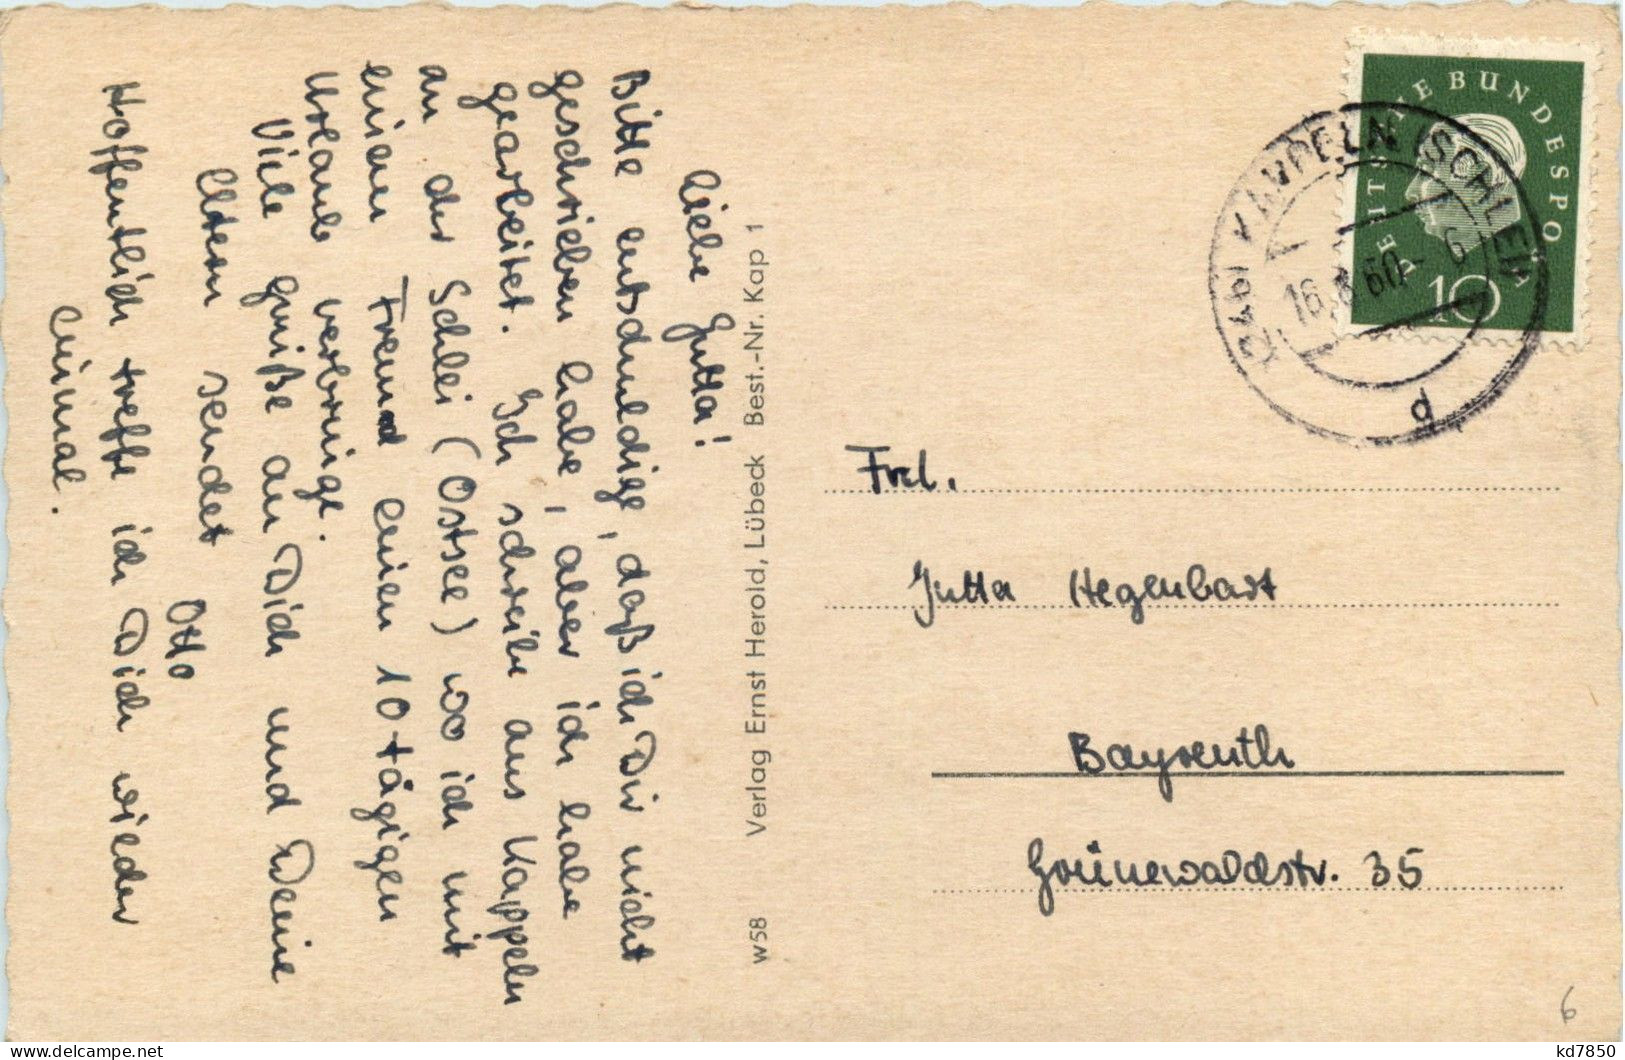 Liebe Jutta!
Bitte entschuldige, daß ich Dir nicht
geschrieben habe, aber ich habe
gearbeitet. Ich schreibe aus Kappeln
an der Schlei (Ostsee) wo ich mit
einem Freund einen 10 tägigen
Urlaub verbringe.
Viele Grüße an Dich und Deine
Eltern sendet
Otto
Hoffentlich treffe ich Dich wieder
einmal.
w 58 Verlag Ernst Herold, Lübeck Best.-Nr. Kap 1
DEUTSCHE BUNDESPOST
10
KAPPELN (SCHLEI)
16. 8.60 - 6
d
Frl.
Jutta Hegenbart
Bayreuth
Grünewaldstr. 35
6
kd7850